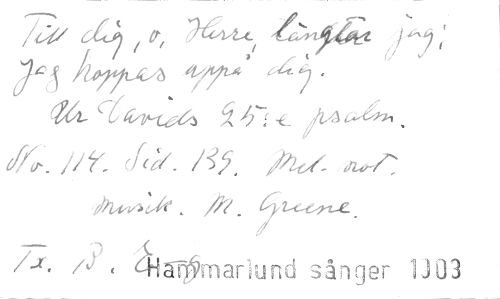 Till dig, o, Herre, längtar jag;
Jag hoppas uppå dig.
Ur Davids 25:e psalm.
No. 114. Sid. 139. Mel. not.
Musik. M. Greene.
Tx. B. E-g
Hammarlund sånger 1903